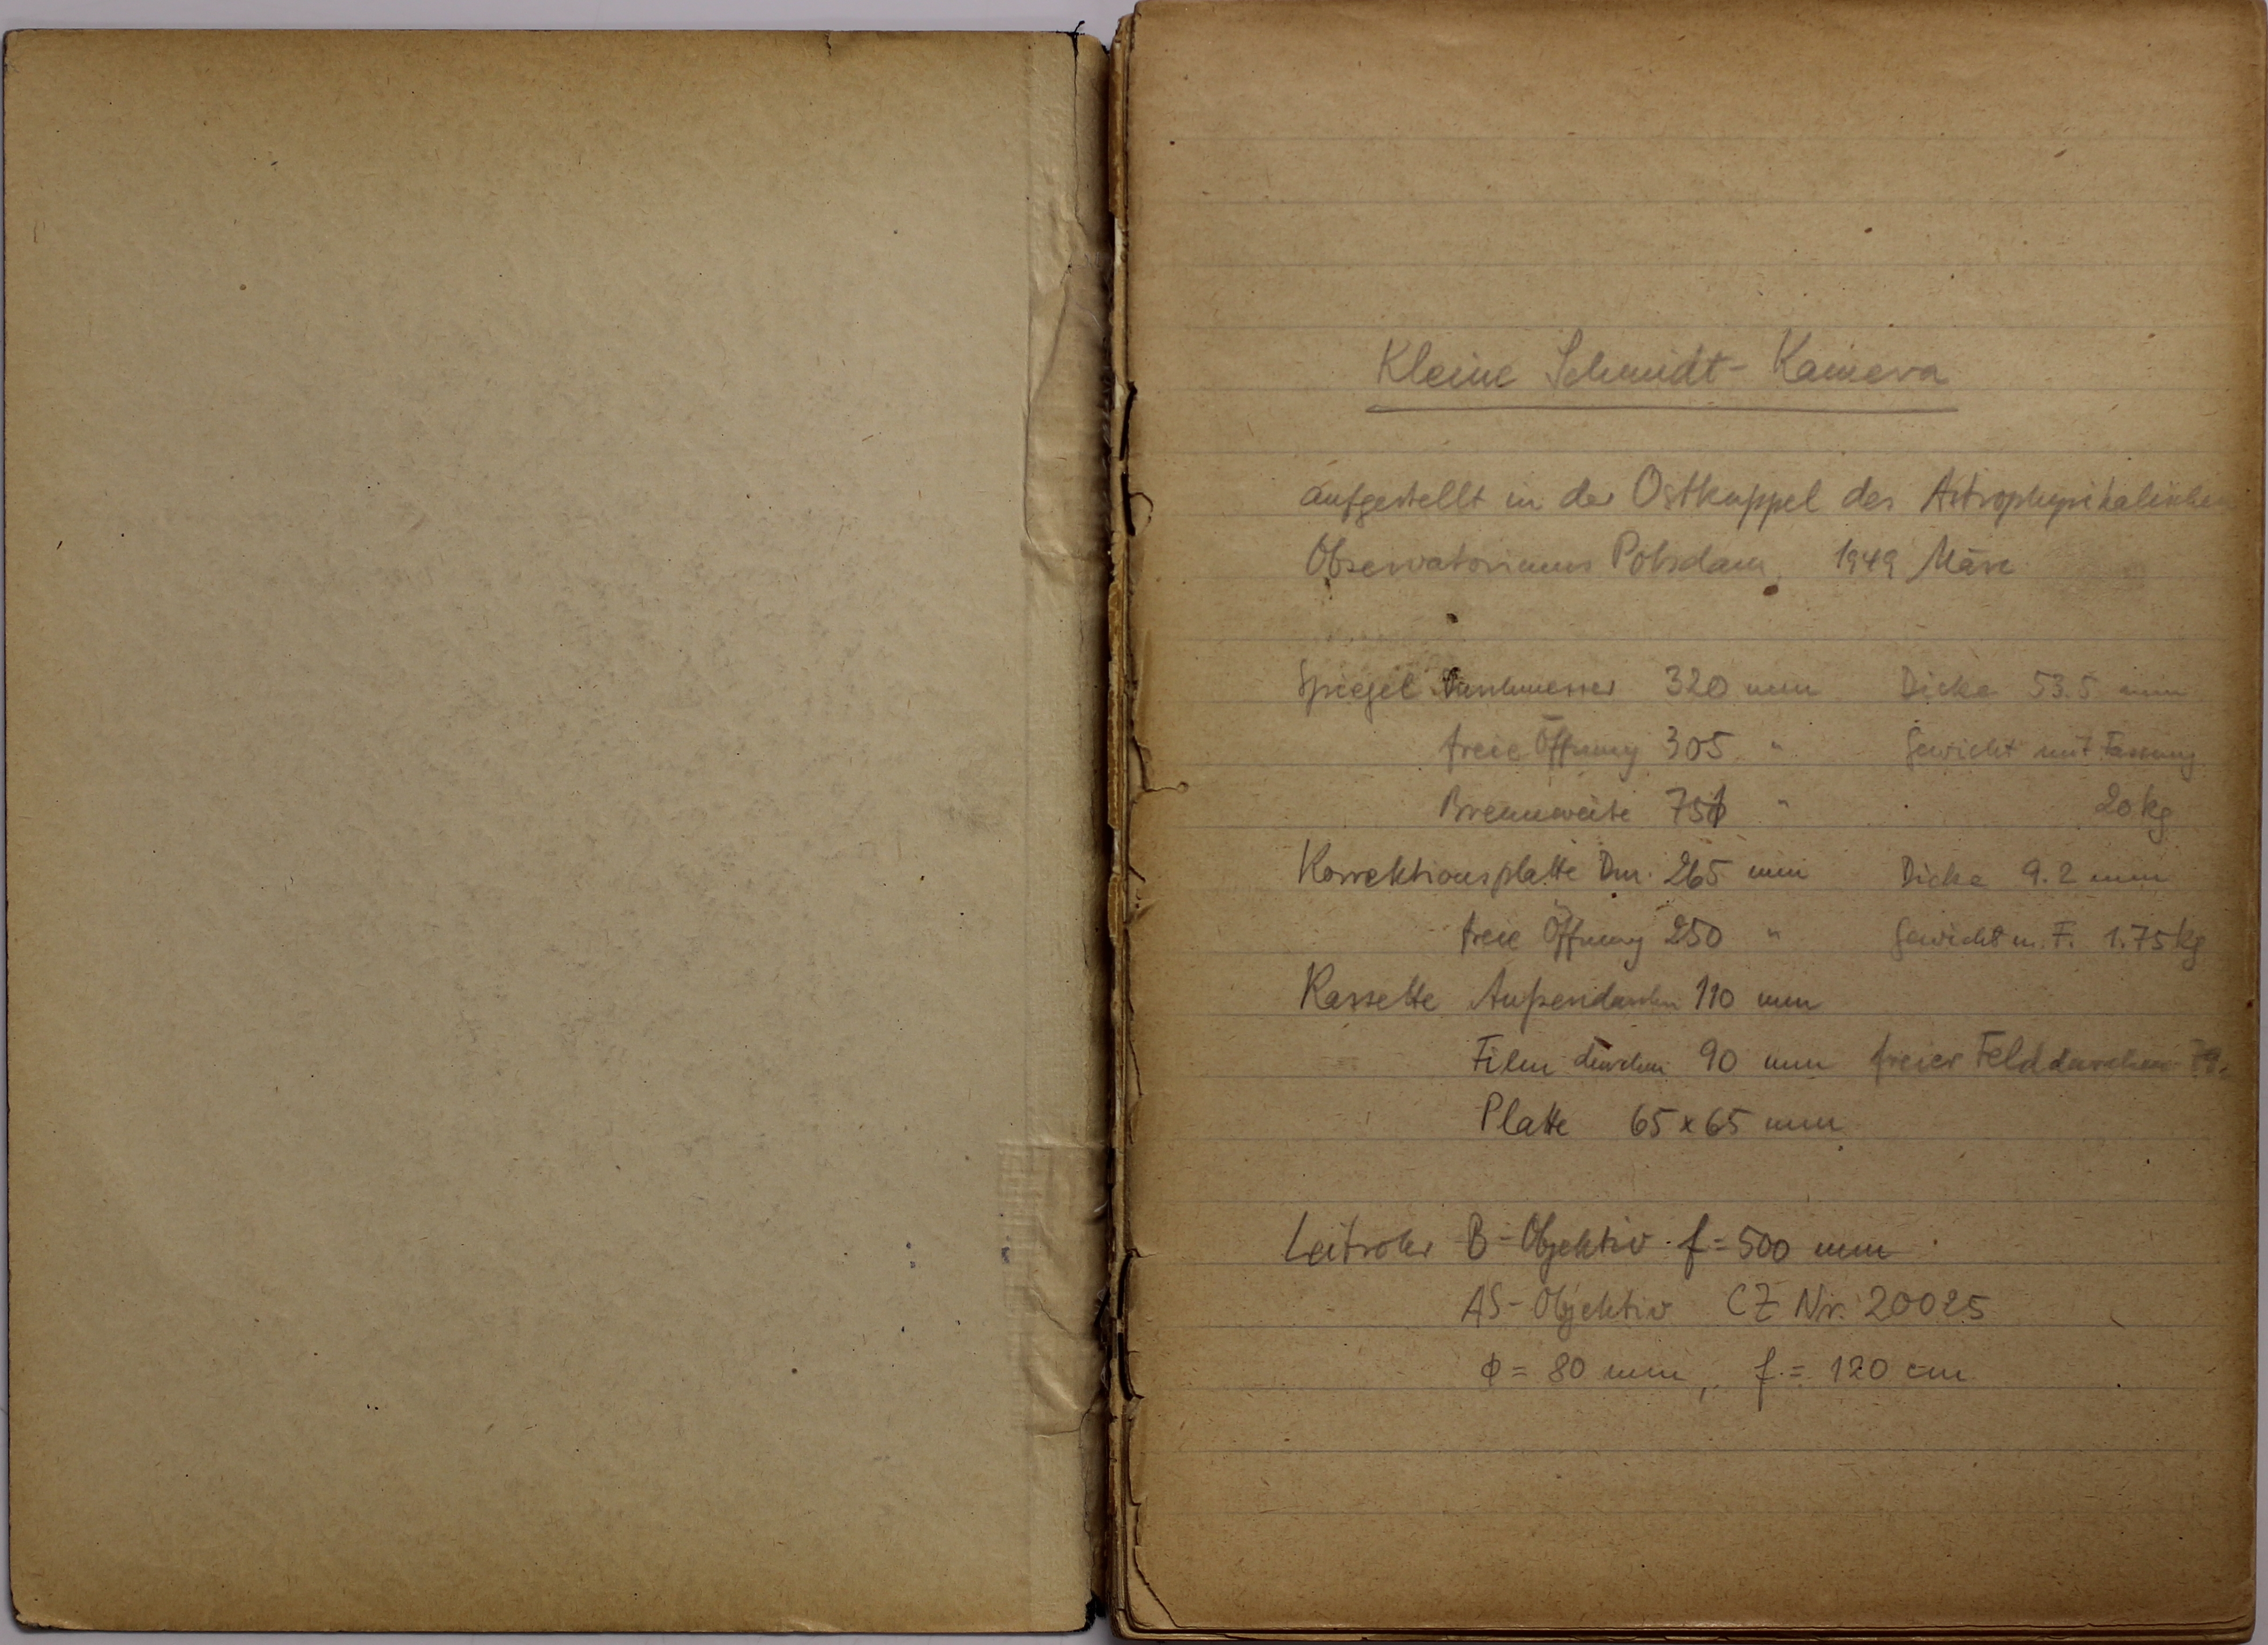 Kleine Schmidt-Kamera
aufgestellt in der Ostkuppel des Astrophysikalischen
Observatoriums Potsdam, 1949 März
Spiegel Durchmesser 320 mm Dicke 53.5 mm
freie Öffnung 305 " Gewicht mit Fassung
Brennweite " 20 kg
Korrektionsplatte Dm. 265 mm Dicke 9.2 mm
freie Öffnung 250 " Gewicht m. F. 1.75 kg
Kassette Außendurchm 110 mm
Film durchm 90 mm freier Felddurchm
Platte 65 x 65 mm
Leitrohr B-Objektiv f = 500 mm
AS-Objektiv CZ Nr. 20025
ϕ = 80 mm, f = 120 cm